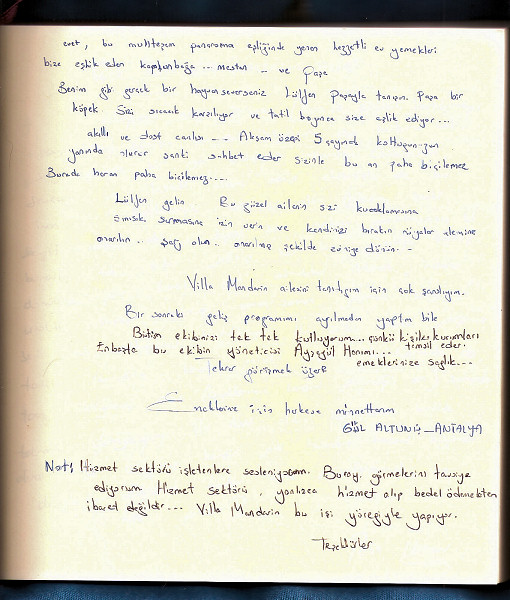 evet, bu muhteşem panaroma eşliğinde yenen lezzetli ev yemekleri
bize eşlik eden kaplumbağa ... mestan - ve Paşa
Benim gibi gerçek bir hayvanseverseniz Lütfen Paşayla tanışın. Paşa bir
köpek Sizi sıcacık karşılıyor ve tatil boyunca size eşlik ediyor...
akıllı ve dost canlısı --- Akşam üzeri 5 çayında koltuğunuzun
yanında oturur sanki sohbet eder sizinle bu an paha biçilemez
Burada heran paha biçilemez....
Lütfen gelin Bu güzel ailenin sizi kucaklamasına
sarmasına izin verin ve kendinizi bırakın rüyalar alemine
onarılın .. Sağ olun .. onarılmış şekilde evinize dönün. -
Villa Mandarin ailesini tanıdığım için çok şanslıyım.
Bir sonraki geliş programımı ayrılmadan yaptım bile
Bütün ekibinizi tek tek kutluyorum... çünkü kişiler kurumları
temsil eder.
Enbaşta bu ekibin yöneticisi Ayşegül Hanımı...
emeklerinize sağlık...
Tekrar görüşmek üzere
Emekleriniz için herkese minnettarım
GÜL ALTUNIŞ_ANTALYA
Not; Hizmet sektörü işletenlere sesleniyorum. Burayı görmelerini tavsiye
ediyorum Hizmet sektörü, yanlızca hizmet alıp bedel ödemekten
ibaret değildir... Villa Mandarin bu işi yüreğiyle yapıyor.
Teşekkürler